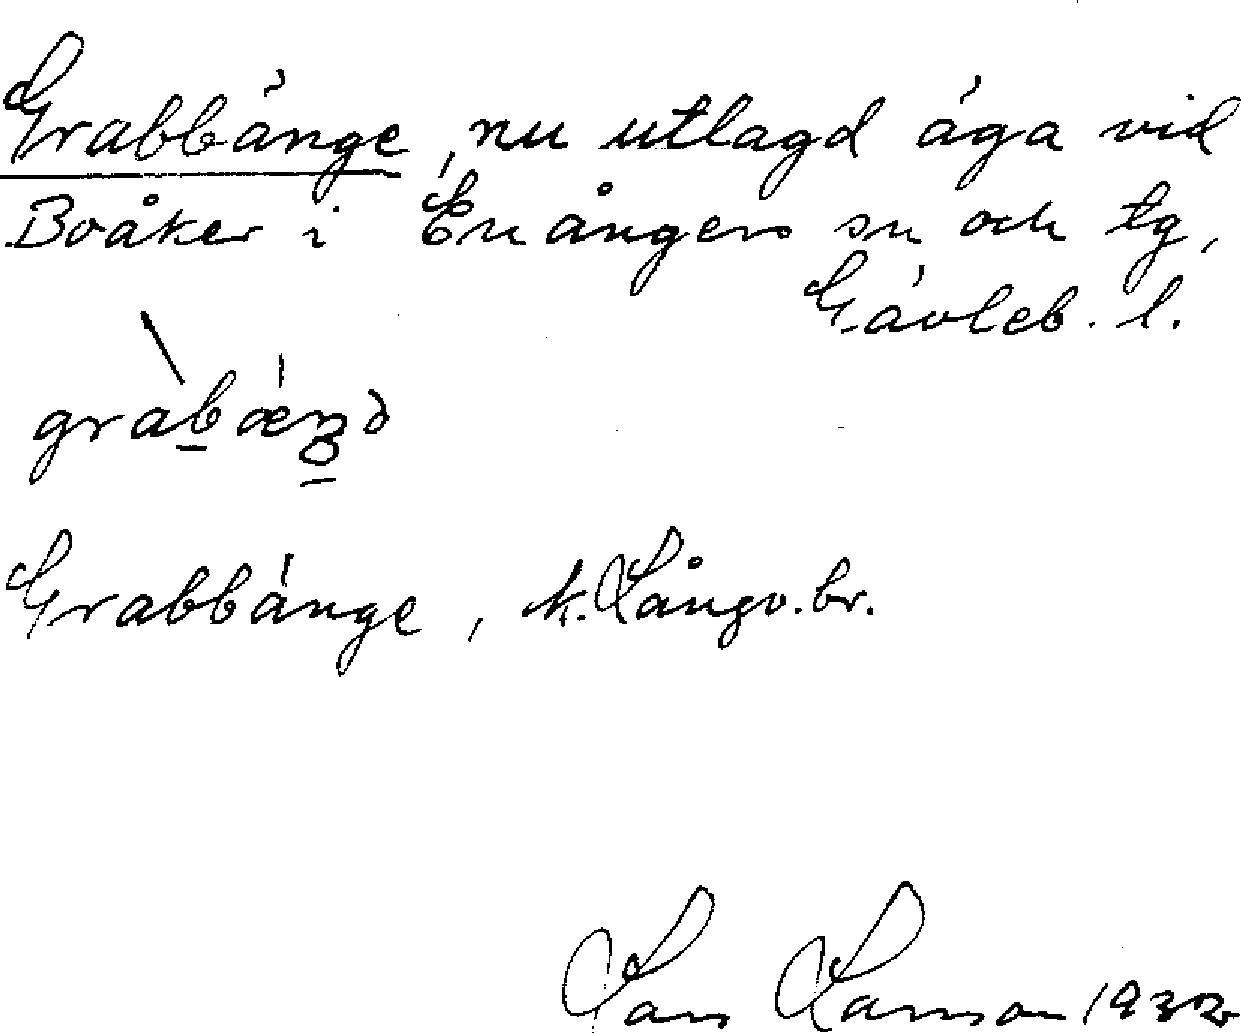 Grabbänge, nu utlagd äga vid
Boåker i Enångers sn och tg,
Gävleb. l.
Grabbänge, k. Långv. br.
Lars Larsson 1932